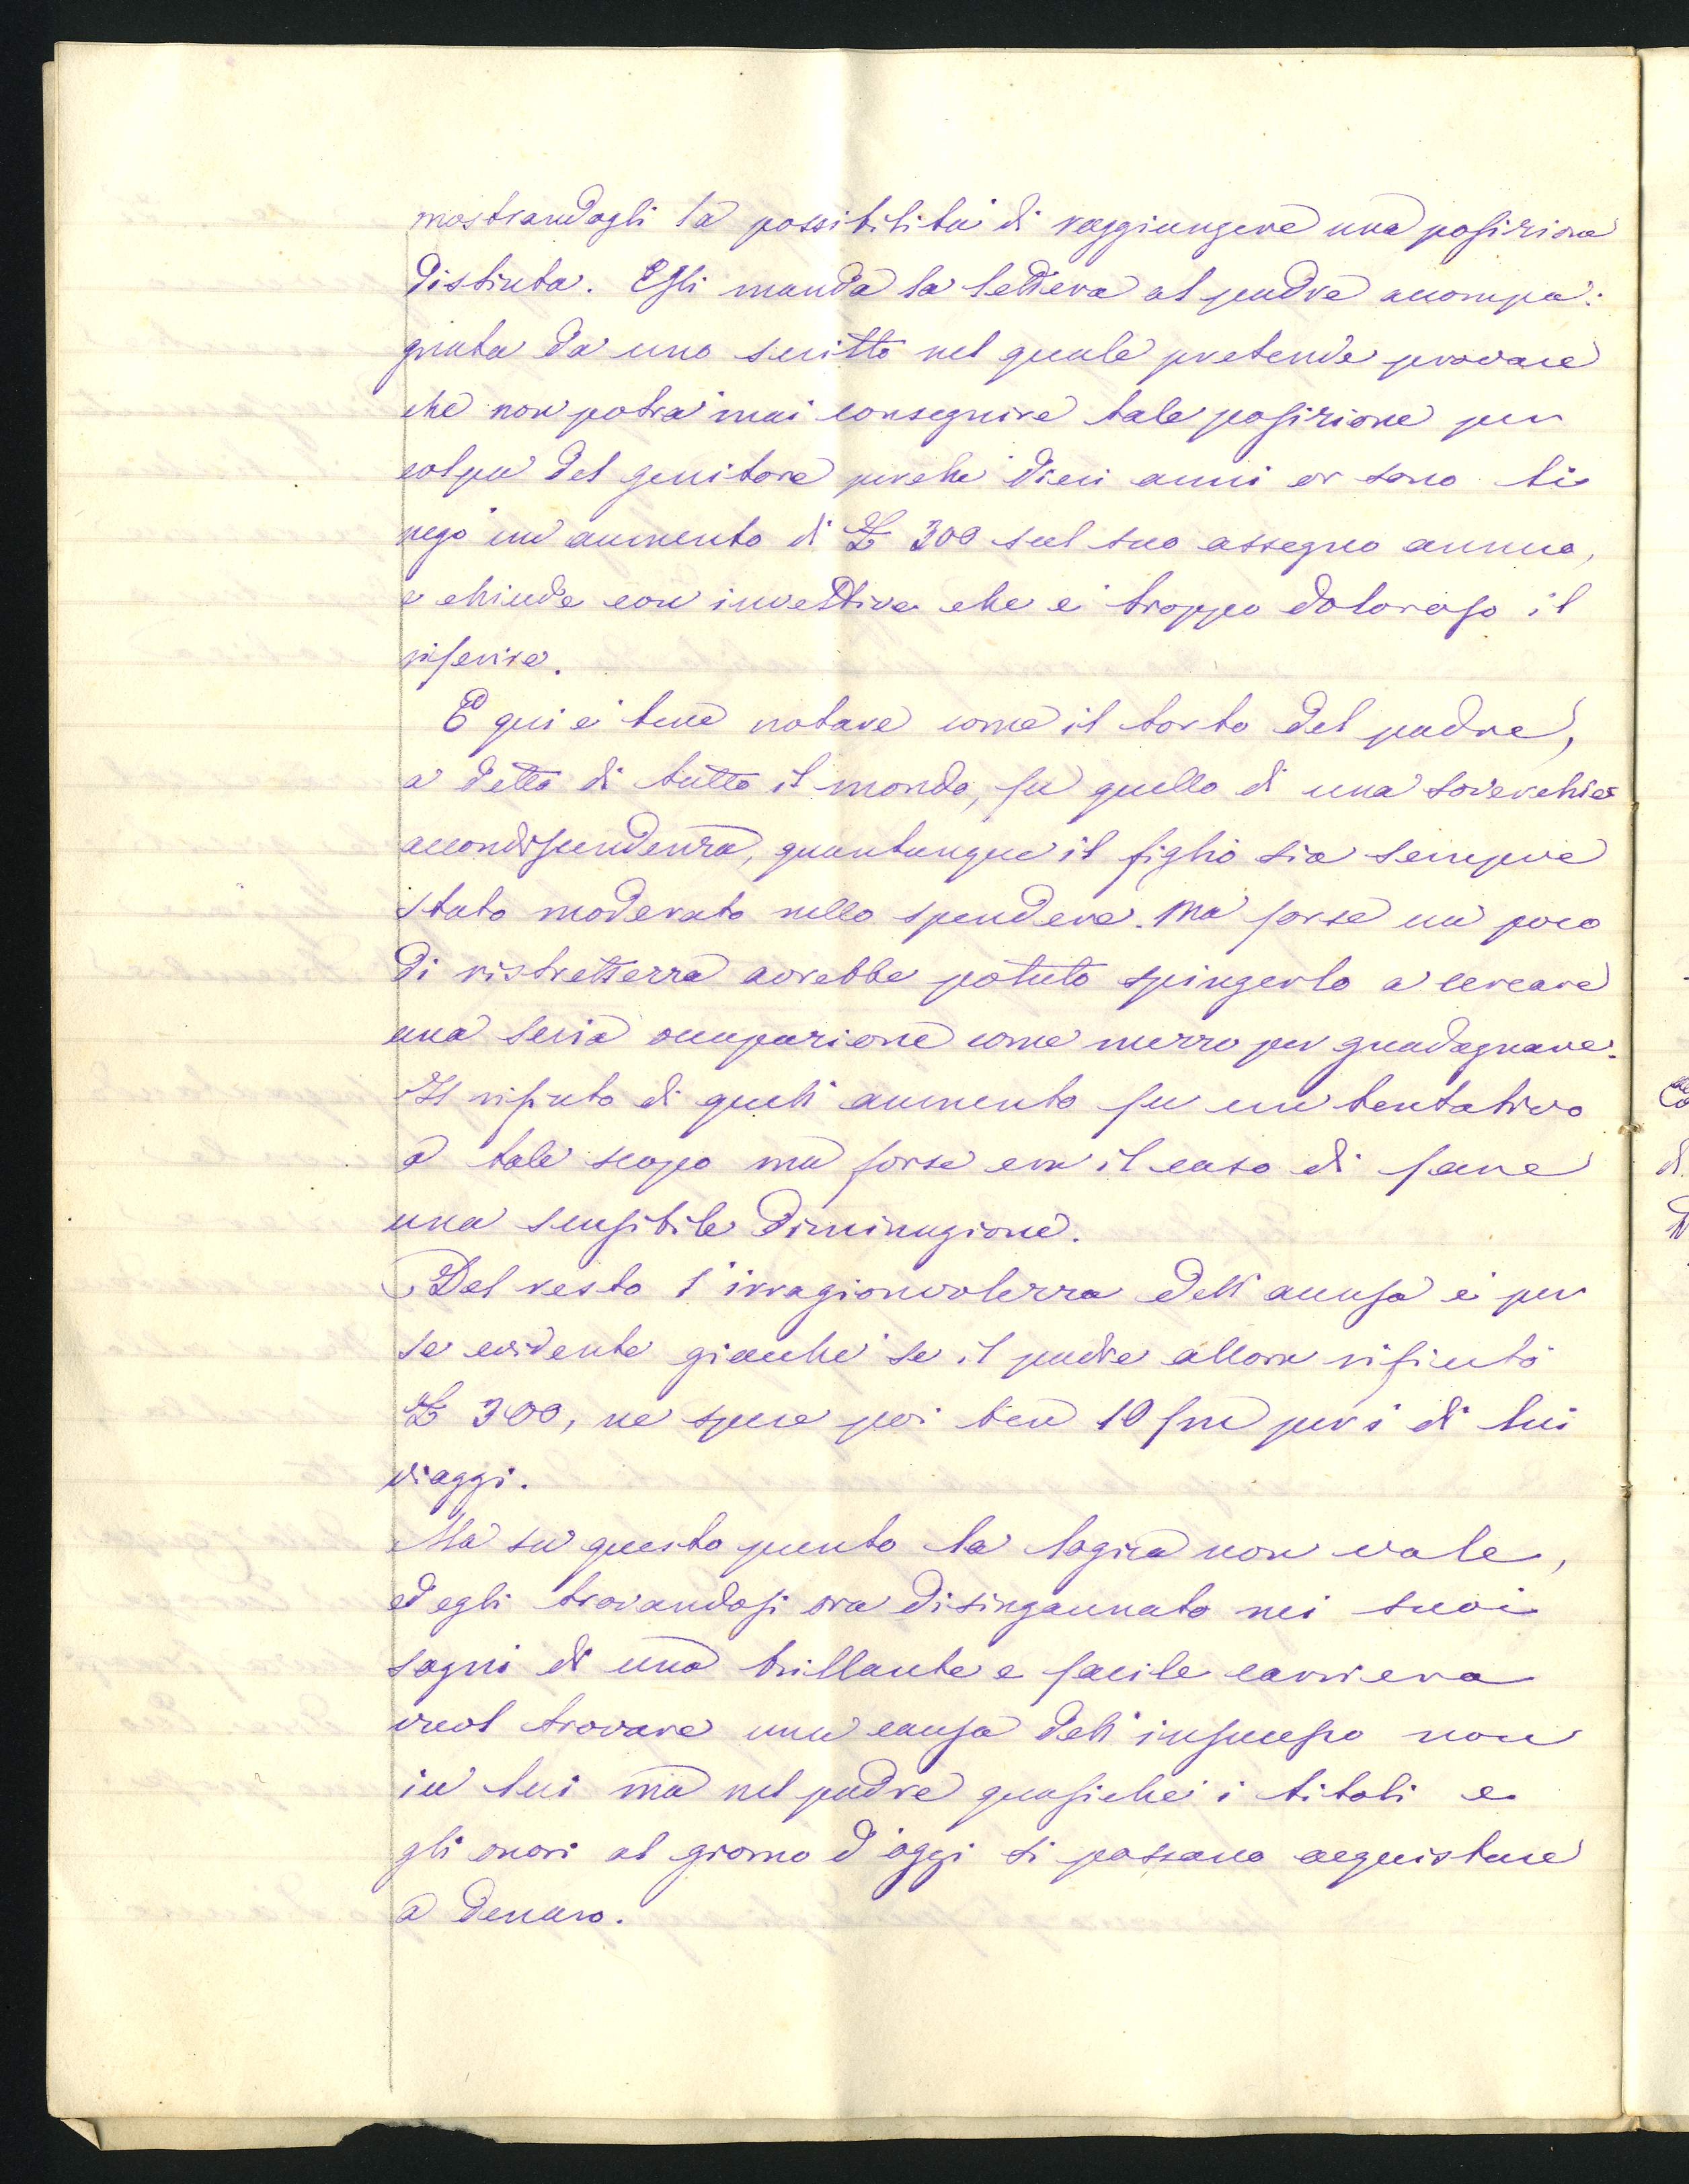 mostrandogli la possibilità di raggiungere una posizione
distinta. Egli manda la lettera al padre accompa:
gnata da uno scritto nel quale pretende provare
che non potrà mai conseguire tale posizione per
colpa del genitore perchè dieci anni or sono li
negò un aumento di £ 300 sul suo assegno annuo,
e chiude con invettive che è troppo doloroso il
riferire.
E qui è bene notare come il torto del padre,
a detta di tutto il mondo, fu quello di una soverchia
accondiscendenza, quantunque il figlio sia sempre
stato moderato nello spendere. Ma forse un poco
di ristrettezza avrebbe potuto spingerlo a cercare
una seria occupazione come mezzo per guadagnare.
Il rifiuto di quell'aumento fu un tentativo
a tale scopo ma forse era il caso di fare
una sensibile diminuzione.
Del resto l'irragionvolezza dell'accusa è per
se evidente giacchè se il padre allora rifiutò
£ 300, ne spese poi ben 10 per i di lui
viaggi.
Ma su questo punto la logica non vale,
ed egli trovandosi ora disingannato nei suoi
sogni di una brillante e facile carriera
vuol trovare una causa dell'insuccesso non
in lui ma nel padre quasichè i titoli e
gli onori al giorno d'oggi si possano acquistare
a denaro.